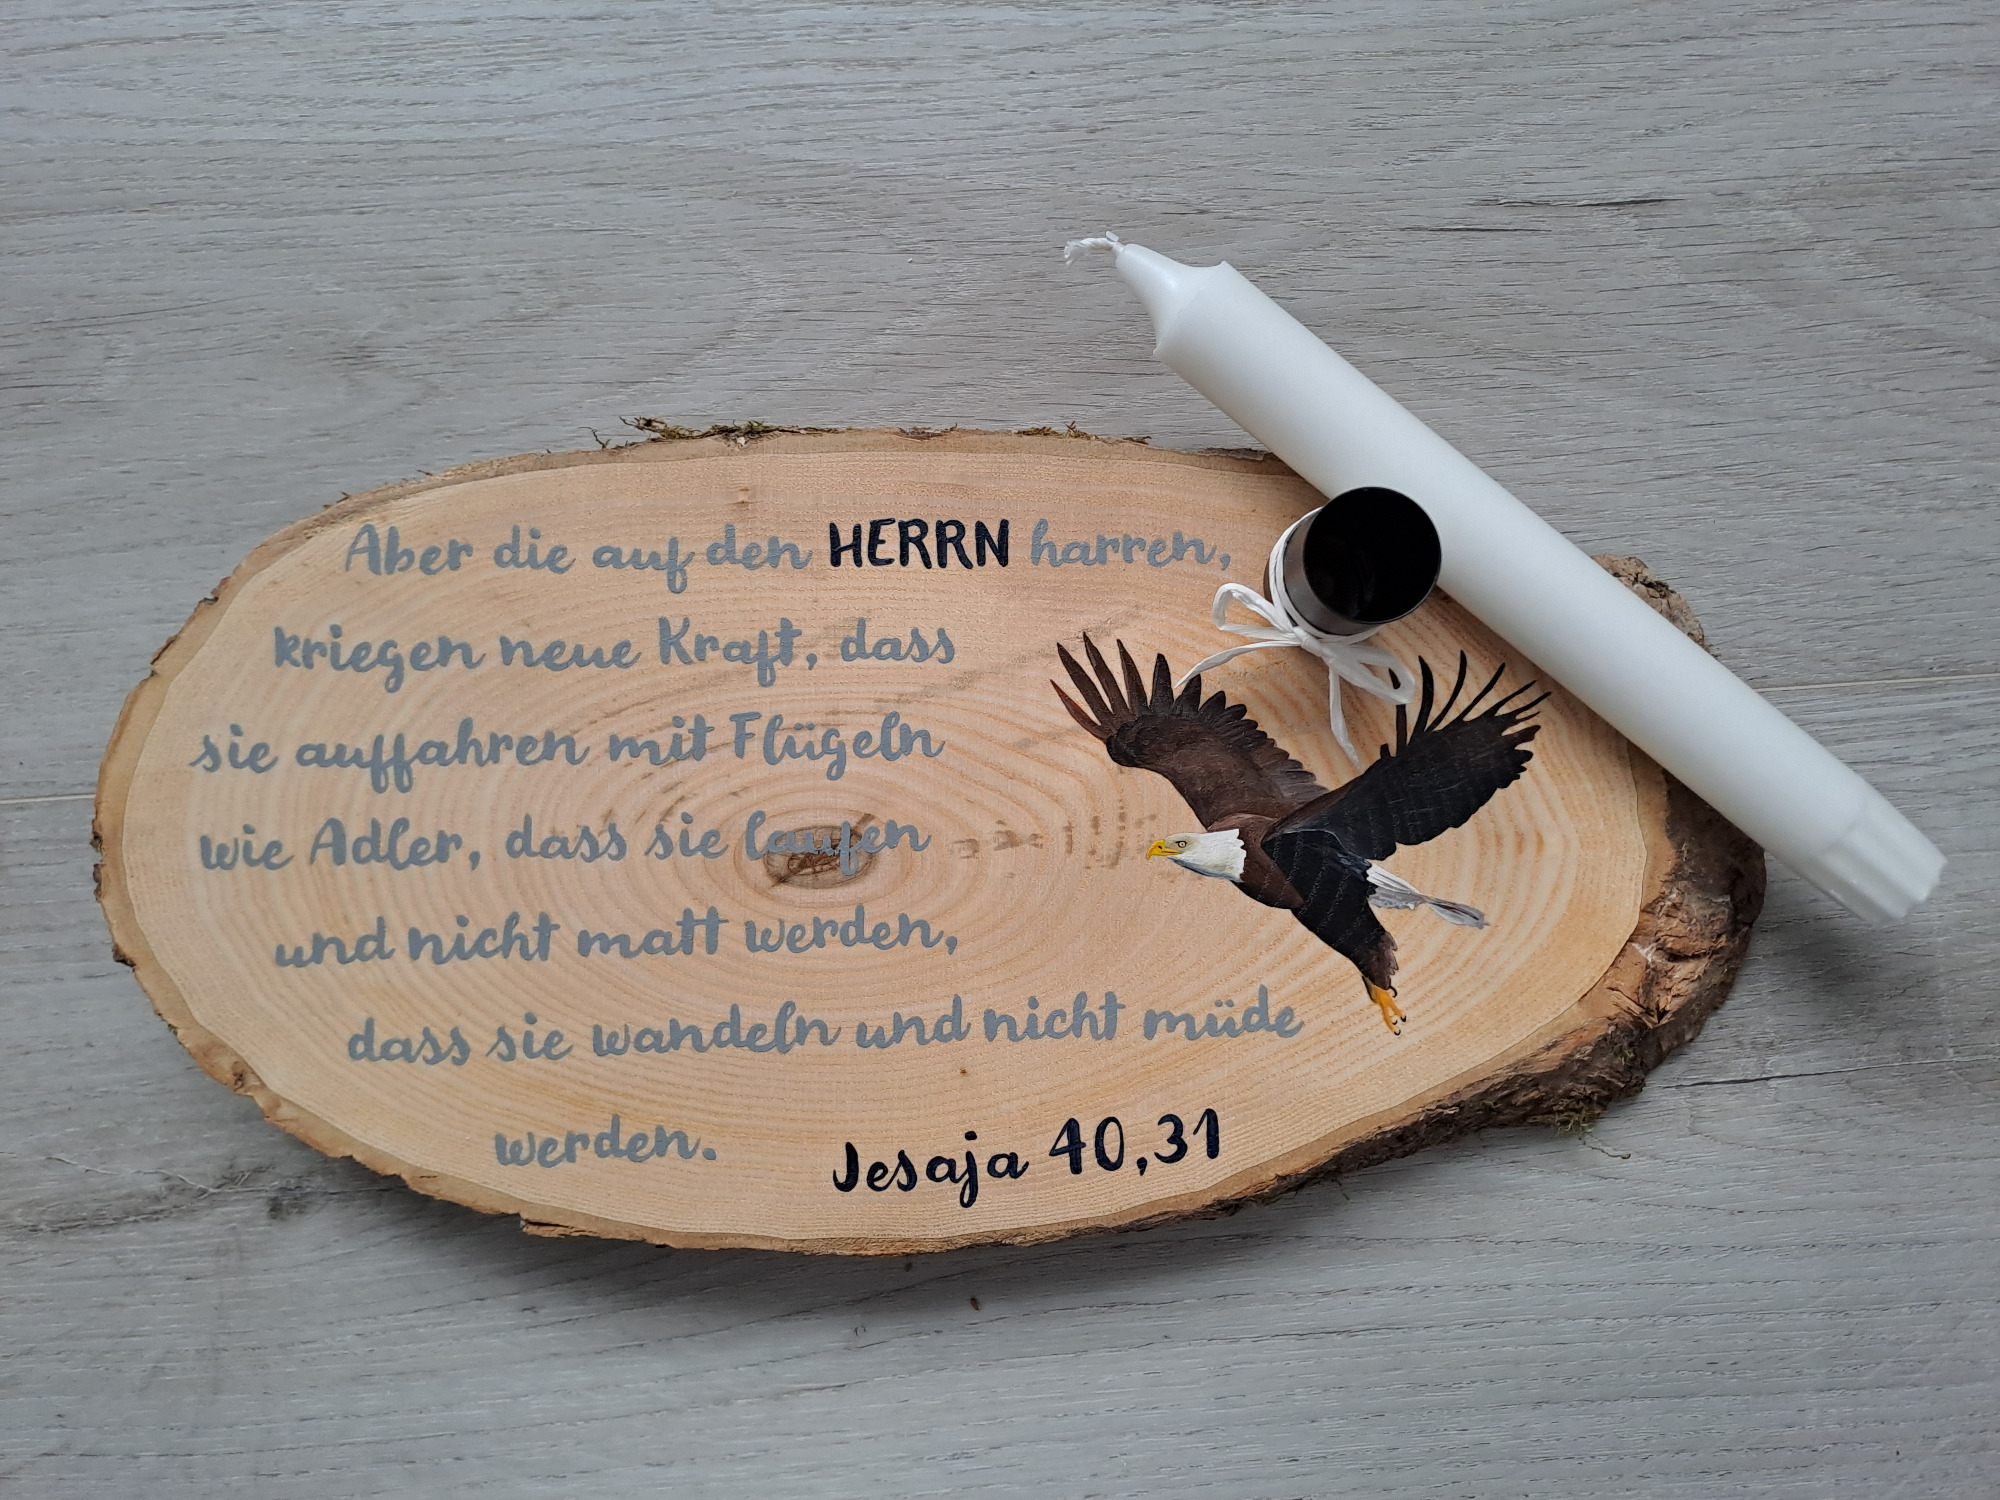 Aber die auf den HERRN harren,
kriegen neue Kraft, dass
sie auffahren mit Flügeln
wie Adler, dass sie laufen
und nicht matt werden,
dass sie wandeln und nicht müde
werden. Jesaja 40,31